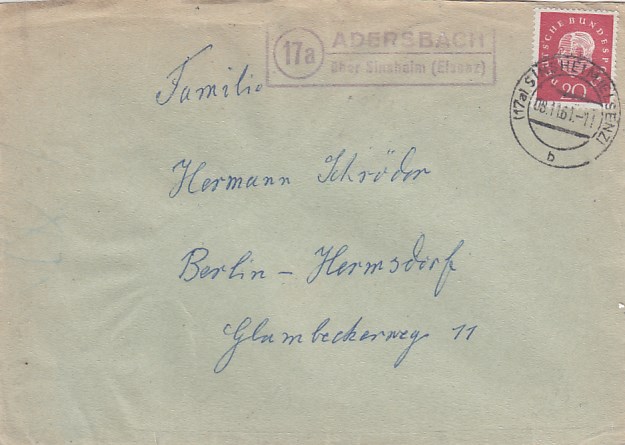 17a ADERSBACH
über Sinsheim (Elsenz)
DEUTSCHE BUNDESPOST
20
(17a) SINSHEIM (ELSENZ)
08.11.61.-11
b
Familie
Hermann Schröder
Berlin - Hermsdorf
Glambeckerweg 11